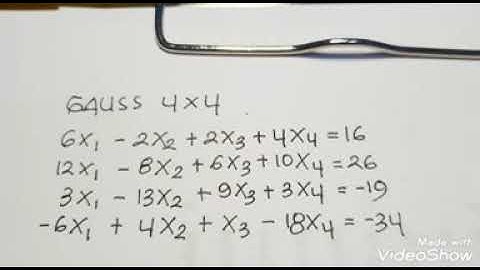 GAUSS 4X4
6X₁ - 2X₂ + 2X₃ + 4X₄ = 16
12X₁ - 8X₂ + 6X₃ + 10X₄ = 26
3X₁ - 13X₂ + 9X₃ + 3X₄ = -19
-6X₁ + 4X₂ + X₃ - 18X₄ = -34
Made with
VideoShow